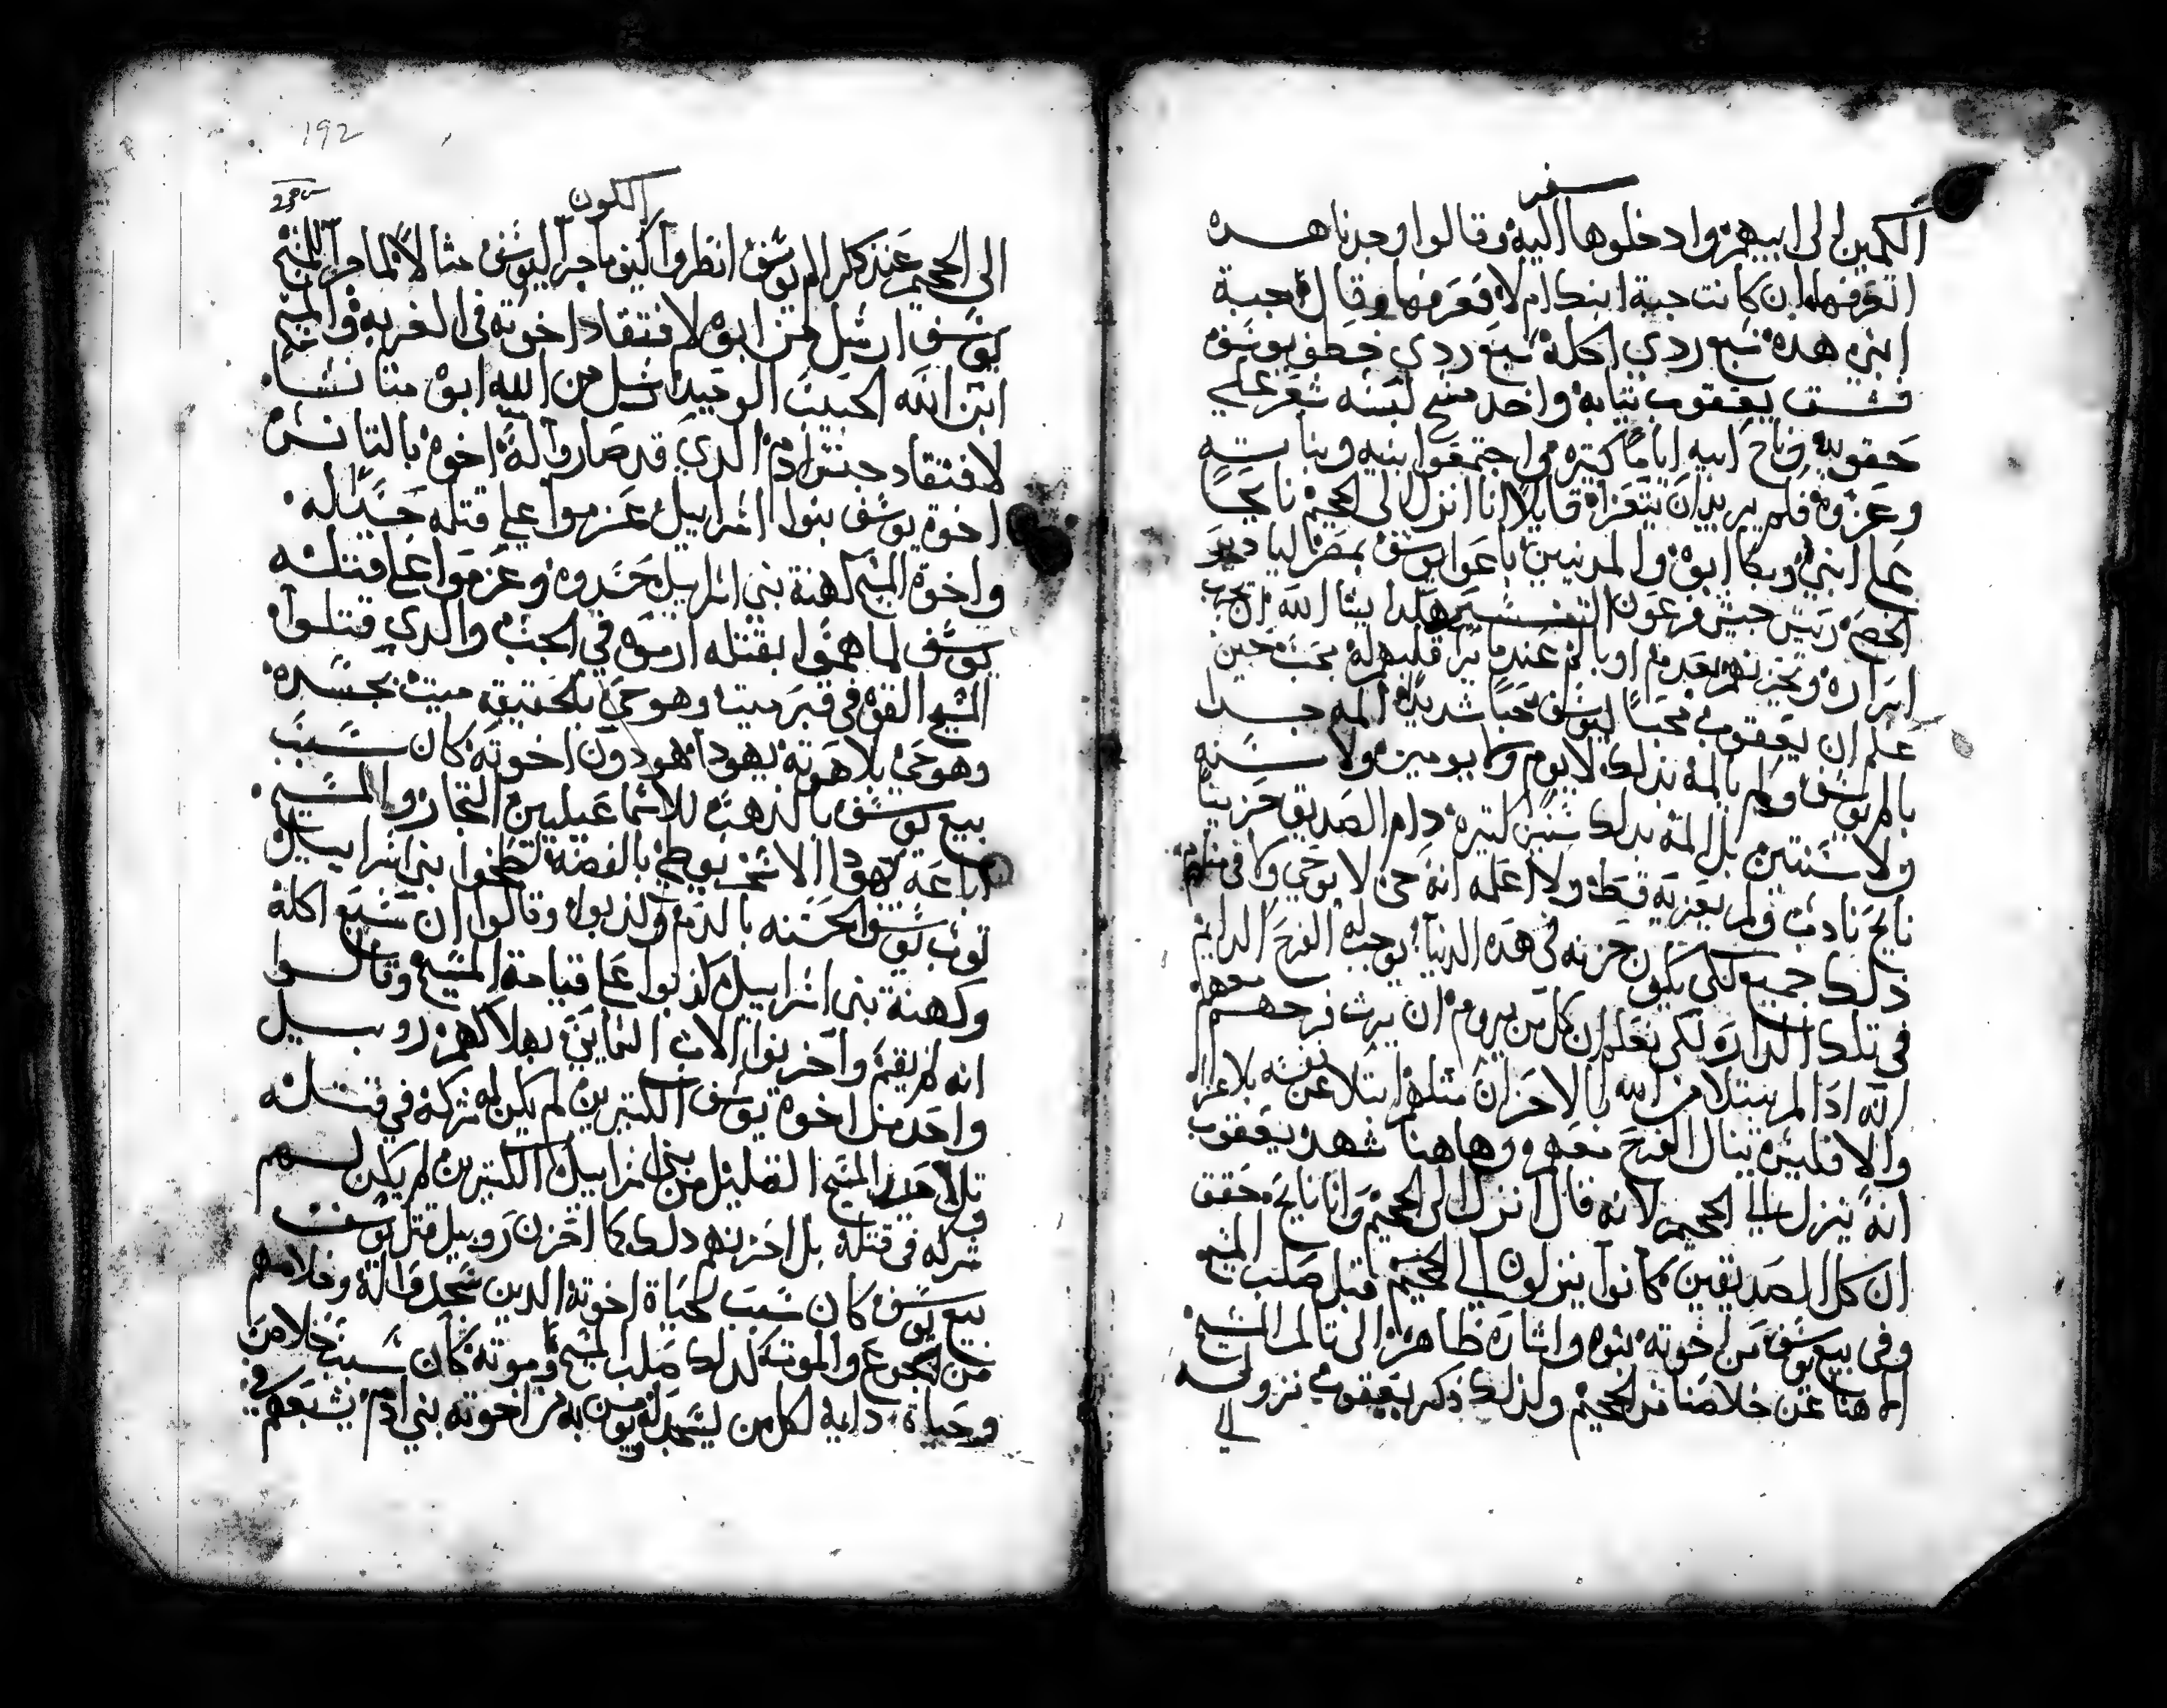 سفر
الكمين الى ابيهم وادخلوها اليه وقالوا وجدنا هده
اتعرفها ان كانت جبة ابنك ام لا فعرفها وقال جبة
ابني هده سبع ردي اكله سبع ردي خطف يوسف
فشق يعقوب تيابه واخد مسح لبسه شعر علي
حقويه وناح ابنه اياما كتيره فاجتمعوا بنيه وبناته
وعزوه فلم يريد ان يتعزا قايلا انا انزل الى الجحيم نايحا
على ابني وبكا ابوه والمدنيين باعوا يوسف بمصر
الخصي رييس جيش فرعون التفسير هكدا يشا الله ان يجرب
ابراره ويحزنهم
علم ان يعقوب محبا ليوسف محبا شديدا المه جدا
بالم يوسف ولم يالمه بدلك لا يوم ولا يومين ولا سنه
ولا سنتين بل المه بدلك سنين كتيره دام الصديق حزينا
نايح نادب ولم يعزيه قط ولا اعلمه انه حي لا بوحي ولا في منام
دلك جميع لكي يكون حزنه في هده الدنيا يوجب له الفرح الدايم
في تلك الدار لكي نعلم ان كل من يروم ان يرث فرحهم معهم
الله ادا لم يبتلا من الله بالاحزان متلهم ابتلا عن نفسه بلا عزا
والا فليس ينال الفرح معهم وهاهنا شهد يعقوب
انه ينزل الي الجحيم لانه قال انزل الى الجحيم وانا نايح محقق
ان كل الصديقين كانوا ينزلون الي الجحيم قبل صلب المسيح
وفي بيع يوسف من اخوته نبوه واشاره ظاهره الى تالم المسيح
الاهنا عن خلاصنا من الجحيم ولدلك دكر يعقوب نزوله
الي
192
الكون
الى الجحيم عند دكر الم يوسف انظروا كيف ما جرا ليوسف مثالا لما جرا للمسيح
يوسف ارسل من ابوه لافتقاد اخوته في الغربه والمسيح
ابن الله الحبيب الوحيد ارسل من الله ابوه متانسا
لافتقاد جنس ادم الدي قد صاروا له اخوه بالتانس
اخوة يوسف بنوا اسراييل عزموا علي قتله حسدا له
واخوة المسيح كهنة بني اسراييل حسدوه وعزموا علي قتله
يوسف لما هموا بقتله ارموه في الجب والدي قتلوا
المسيح القوه في قبر ميتا وهو حي بالحقيقه ميت بجسده
وهو حي بلاهوته يهودا هو دون اخوته كان سبب
بيع يوسف بالدهب للاسماعيليين التجار والمسيح
اباعه يهودا الاسخريوطي بالفضه لطخوا بني اسراييل
توب يوسف الحسنه بالدم وكدبوا وقالوا ان سبع اكله
وكهنة بني اسراييل كدبوا علي قيامة المسيح وقالوا
انه لم يقم واخربوا الاب السمايي بهلاكهم روبيل
واحد من اخوة يوسف الكتيرين لم يكن له شركه في قتله
تلاميد المسيح القليل من بني اسراييل الكتيرين لم يكن لهم
شركه في قتله بل احزنهم دلك كما احزن روبيل قتل يوسف
بيع يوسف كان سبب لحياة اخوته الدين سجدوا له وخلاصهم
من الجوع والموت كدلك صلب المسيح وموته كان سبب خلاص
وحياة دايمه لكل من يسجد له ويومن به من اخوته بني ادم يشبعهم